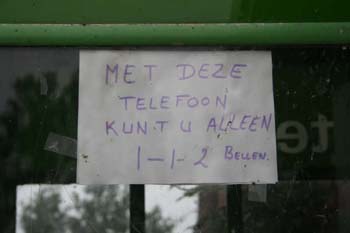 MET DEZE
TELEFOON
KUNT U ALLEEN
1-1-2 BELLEN.
te